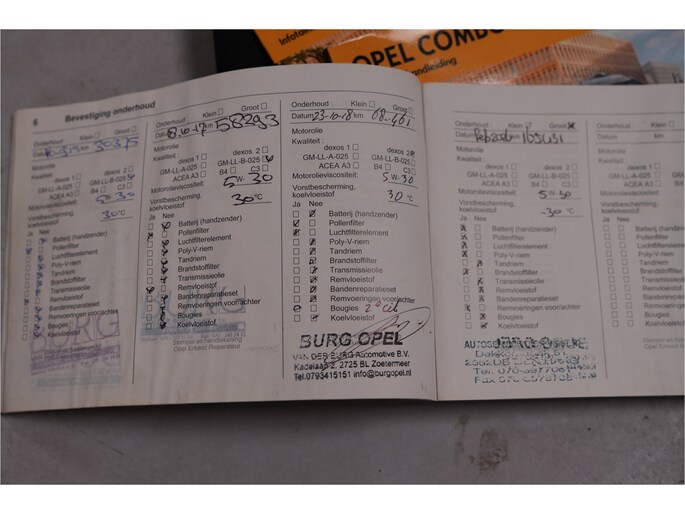 Infotain
OPEL COMBO
handleiding
6 Bevestiging onderhoud
Onderhoud: Klein Groot
km 30375
Motorolie
Kwaliteit:
dexos 1 dexos 2
GM-LL-A-025 GM-LL-B-025
ACEA A3
Motorolieviscositeit:
5w-30
Vorstbescherming,
koelvloeistof
30°C
Ja Nee
Batterij (handzender)
Pollenfilter
Luchtfilterelement
Poly-V-riem
Tandriem
Brandstoffilter
Transmissieolie
Remvloeistof
Bandenreparatieset
Remvoeringen voor/achter
Bougies
Koelvloeistof
BURG
Onderhoud: Klein Groot
Datum km 58293
Motorolie
Kwaliteit:
dexos 1 dexos 2
GM-LL-A-025 GM-LL-B-025
ACEA A3 B4 C3
Motorolieviscositeit:
5w-30
Vorstbescherming,
koelvloeistof
30°C
Ja Nee
Batterij (handzender)
Pollenfilter
Luchtfilterelement
Poly-V-riem
Tandriem
Brandstoffilter
Transmissieolie
Remvloeistof
Bandenreparatieset
Remvoeringen voor/achter
Bougies
Koelvloeistof
Stempel en handtekening
Opel Erkend Reparateur
Onderhoud: Klein Groot
Datum 23-10-18 km
Motorolie
Kwaliteit:
dexos 1 dexos 2
GM-LL-A-025 GM-LL-B-025
ACEA A3 B4 C3
Motorolieviscositeit:
5w-30
Vorstbescherming,
koelvloeistof
30°C
Ja Nee
Batterij (handzender)
Pollenfilter
Luchtfilterelement
Poly-V-riem
Tandriem
Brandstoffilter
Transmissieolie
Remvloeistof
Bandenreparatieset
Remvoeringen voor/achter
Bougies
Koelvloeistof
BURG OPEL
VAN DER BURG Automotive B.V.
Kadelaan 2, 2725 BL Zoetermeer
Tel.0793415151 info@burgopel.nl
Onderhoud: Klein Groot
Datum km
Motorolie
Kwaliteit:
dexos 1 dexos 2
GM-LL-A-025 GM-LL-B-025
ACEA A3 B4 C3
Motorolieviscositeit:
5w-30
Vorstbescherming,
koelvloeistof
-30°C
Ja Nee
Batterij (handzender)
Pollenfilter
Luchtfilterelement
Poly-V-riem
Tandriem
Brandstoffilter
Transmissieolie
Remvloeistof
Bandenreparatieset
Remvoeringen voor/achter
Bougies
Koelvloeistof
Onderhoud: Klein
Datum km
Motorolie
Kwaliteit:
dexos 1
GM-LL-A-025
ACEA A3
Motorolieviscositeit:
Vorstbescherming,
koelvloeistof
Ja Nee
Batterij (handzender)
Pollenfilter
Luchtfilterelement
Poly-V-riem
Tandriem
Brandstoffilter
Transmissieolie
Remvloeistof
Bandenreparatieset
Remvoeringen
Bougies
Koelvloeistof
Stempel en handtekening
Opel Erkend Reparateur